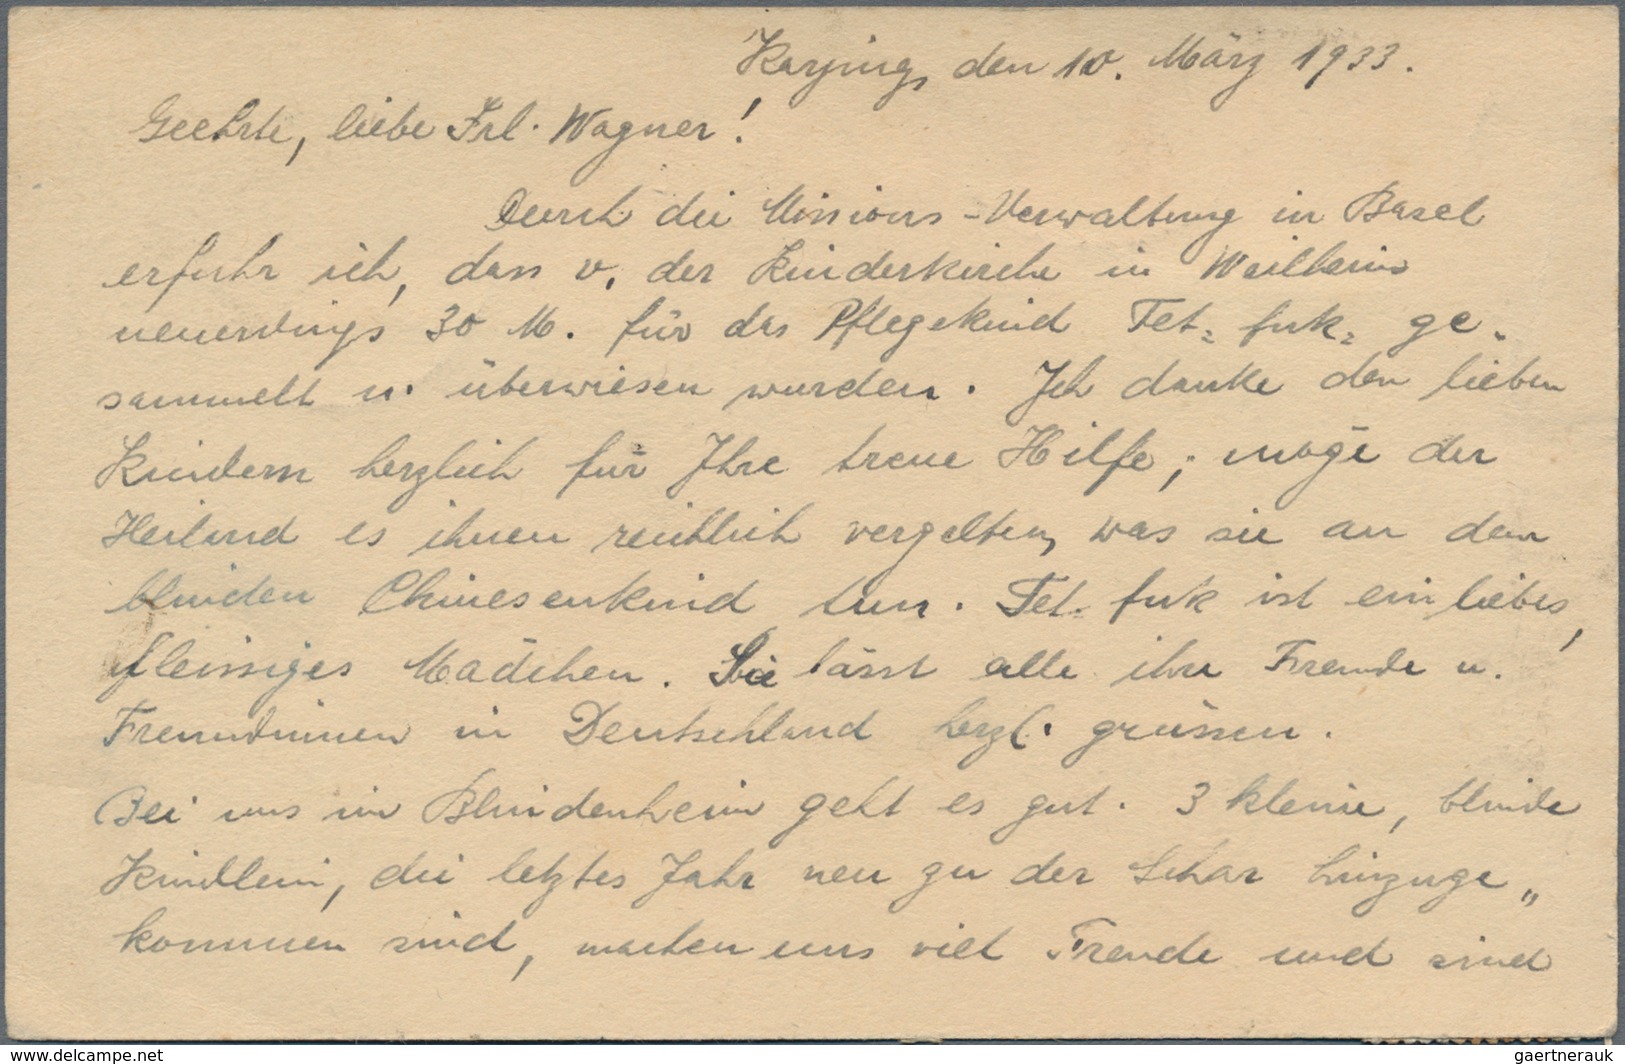 Kaying, den 10. März 1933.
Geehrte, liebe Frl. Wagner!
Durch die Missions-Verwaltung in Basel
erfuhr ich, dass v. der Kinderkirche in Weilheim
neuerdings 30 M. für das Pflegekind Tet= fuk= ge-
sammelt u. überwiesen wurden. Ich danke den lieben
Kindern herzlich für Ihre treue Hilfe; möge der
Heiland es ihnen reichlich vergelten, was sie an dem
blinden Chinesenkind tun. Tet= fuk ist ein liebes,
fleissiges Mädchen. Sie lässt alle ihre Freunde u.
Freundinnen in Deutschland herzl. grüssen.
Bei uns im Blindenheim geht es gut. 3 kleine, blinde
Kindlein, die letztes Jahr neu zu der Schar hinzuge„
kommen sind, machen uns viel Freude und sind
www.delcampe.net
gaertnerauk